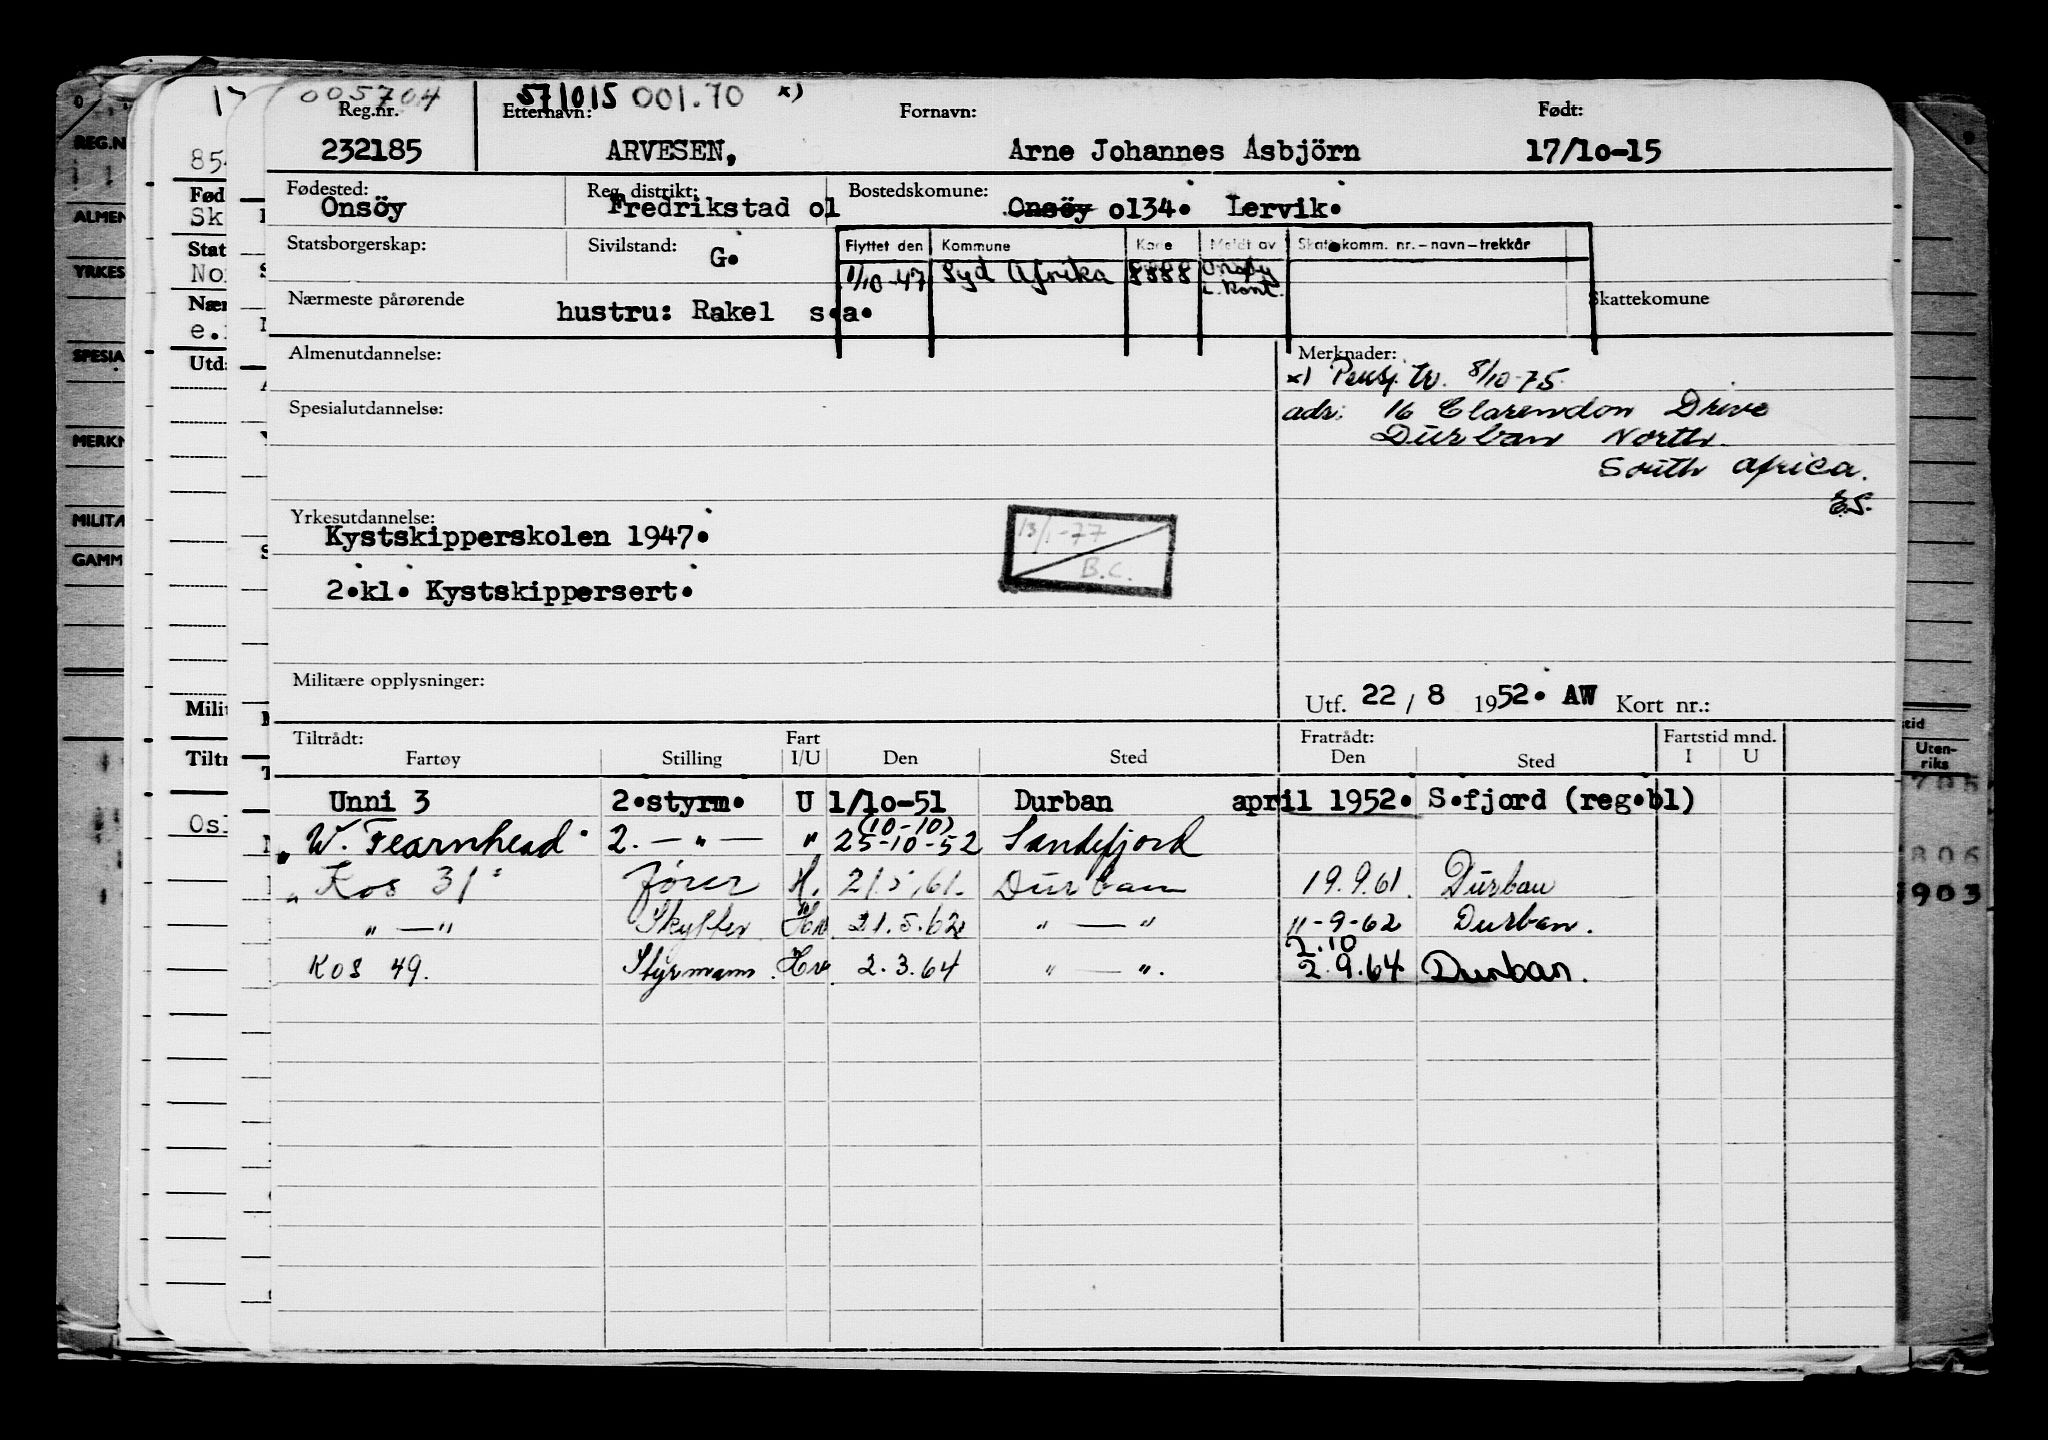 005704 571015 001.70 x)
Reg.nr. Etternavn: Fornavn: Født:
232185 ARVESEN, Arne Johannes Asbjörn 17/10-15
Fødested: Reg. distrikt: Bostedskomune:
Onsöy Fredrikstad o1 Onsöy o134. Lervik.
Statsborgerskap: Sivilstand: G.
Flyttet den Kommune Kode Meldt av Skattekomm. nr.–navn–trekkår
1/10-47 Syd Afrika 8888 Onsøy
Nærmeste pårørende hustru: Rakel s.a. Skattekomune
Almenutdannelse: Merknader:
x) Pensj. tr. 8/10-75
Spesialutdannelse: adr: 16 Clarendon Drive
Durban North
South Africa.
E.S.
Yrkesutdannelse:
Kystskipperskolen 1947.
13/1-77
B.C.
2.kl. Kystskippersert.
Militære opplysninger: Utf. 22 / 8 1952. AW Kort nr.:
Tiltrådt: Fart Fratrådt: Fartstid mnd.
Fartøy Stilling I/U Den Sted Den Sted I U
Unni 3 2.styrm. U 1/10-51 Durban april 1952. S.fjord (reg.bl)
(10-10)
"W. Fearnhead" 2. — " — " 25-10-52 Sandefjord
"Kos 31" fører H. 21.5.61. Durban 19.9.61. Durban
" — " Skytter Hv 21.5.62 " — " 11-9-62 Durban.
2.10
Kos 49. Styrmann. Hv 2.3.64 " — ". 2.9.64 Durban.
REG.N
ALMEN
YRKES
SPESIA
MERKN
MILITÆ
GAMM
17
854
Fød
Sk
Stat
No
Nær
e.
Utd
Mili
Tiltr
Os
Uten-
riks
705
806
903